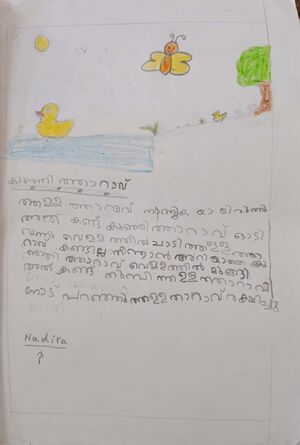 കുഞ്ഞി ത്താറാവ്
തള്ള താറാവ്
അത് കണ്ട് കുഞ്ഞി ത്താറാവ് ഓടി
വന്നി വെള്ളത്തിൽ ചാടി തള്ള ത്താ
റാവ് കണ്ടില്ല നീന്താൻ അറിയാതെ കു
ഞ്ഞി ത്താറാവ് വെള്ളത്തിൽ മുങ്ങി
അത് കണ്ട് തുമ്പി തള്ള ത്താറാവി
നോട് പറഞ്ഞു തള്ള താറാവ് രക്ഷിച്ചു
Nadira